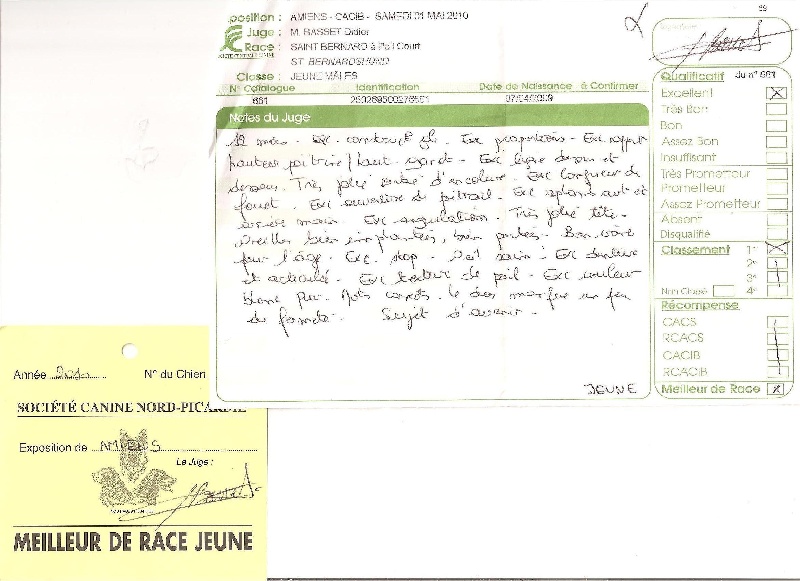 position : AMIENS - CACIB - SAMEDI 01 MAI 2010
Juge : M. BASSET Didier
Race : SAINT BERNARD à Poil Court
ST. BERNARDSHUND
Classe : JEUNE MALES
N° Catalogue Identification Date de Naissance à Confirmer
661 07/04/2009
Notes du Juge
12 mois - Exc. Exc proportions - Exc rapport
hauteur poitrine/haut. garrot - Exc ligne dessus et
dessous. Très jolie d'encolure. Exc longueur de
fouet. Exc ouverture de poitrail. Exc aplombs avt et
arrière main. Exc angulation. Très jolie tête.
Oreilles bien implantées, bien portées. Bon
pour l'âge. Exc. stop. Oeil sain. Exc denture
et Exc texture de poil - Exc couleur
blanc pur. le dos manque un peu
de fermeté. Sujet d'avenir.
JEUNE
Qualificatif du n° 661
Excellent
Très Bon
Bon
Assez Bon
Insuffisant
Très Prometteur
Prometteur
Assez Prometteur
Absent
Disqualifié
Classement 1er
2e
3e
Non Classé 4e
Récompense
CACS
RCACS
CACIB
RCACIB
Meilleur de Race
Année 2010 N° du Chien
SOCIÉTÉ CANINE NORD-PICARDIE
Exposition de AMIENS
Le Juge :
MEILLEUR DE RACE JEUNE